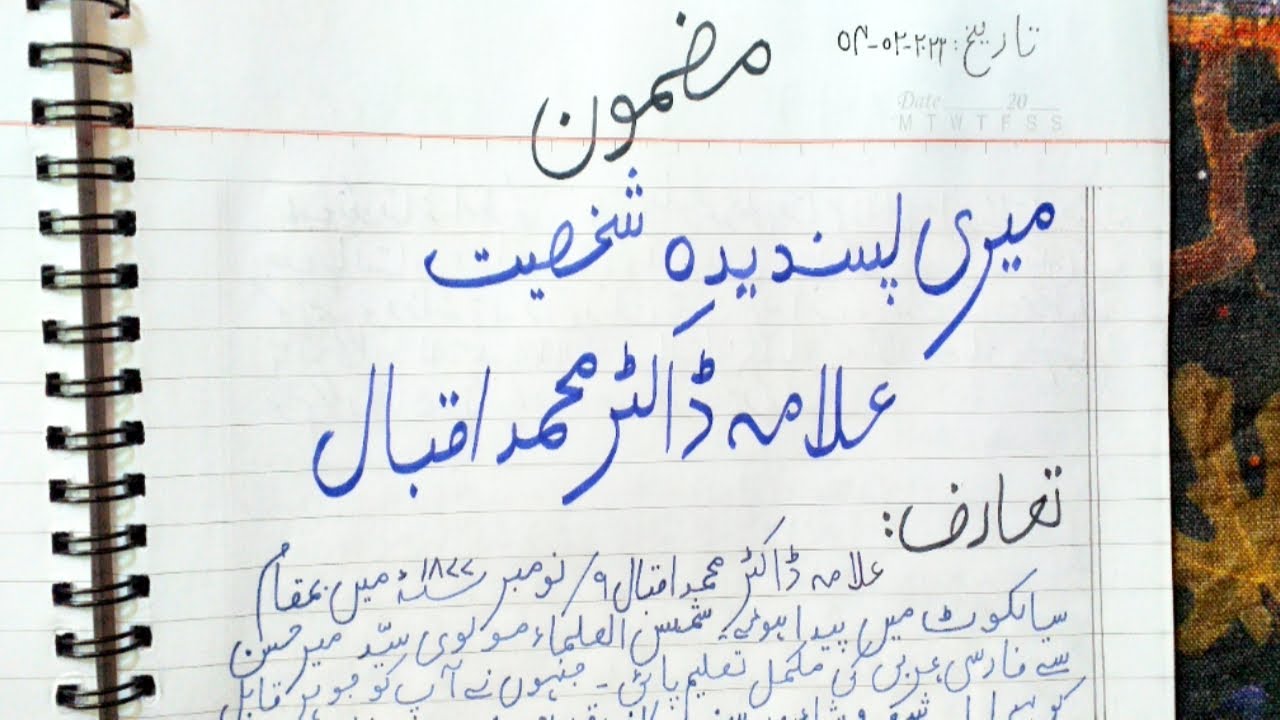 تاریخ: ۰۴-۰۲-۲۰۲۲
Date 20
M T W T F S S
مضمون
میری پسندیدہ شخصیت
علامہ ڈاکٹر محمد اقبال
تعارف:
علامہ ڈاکٹر محمد اقبال ۹/ نومبر ۱۸۷۷ میں بمقام
سیالکوٹ میں پیدا ہوئے۔ شمس العلماء مولوی سیّد میر حسن
سے فارسی عربی کی مکمل تعلیم پائی ۔ جنہوں نے آپ کو جوہر قابل